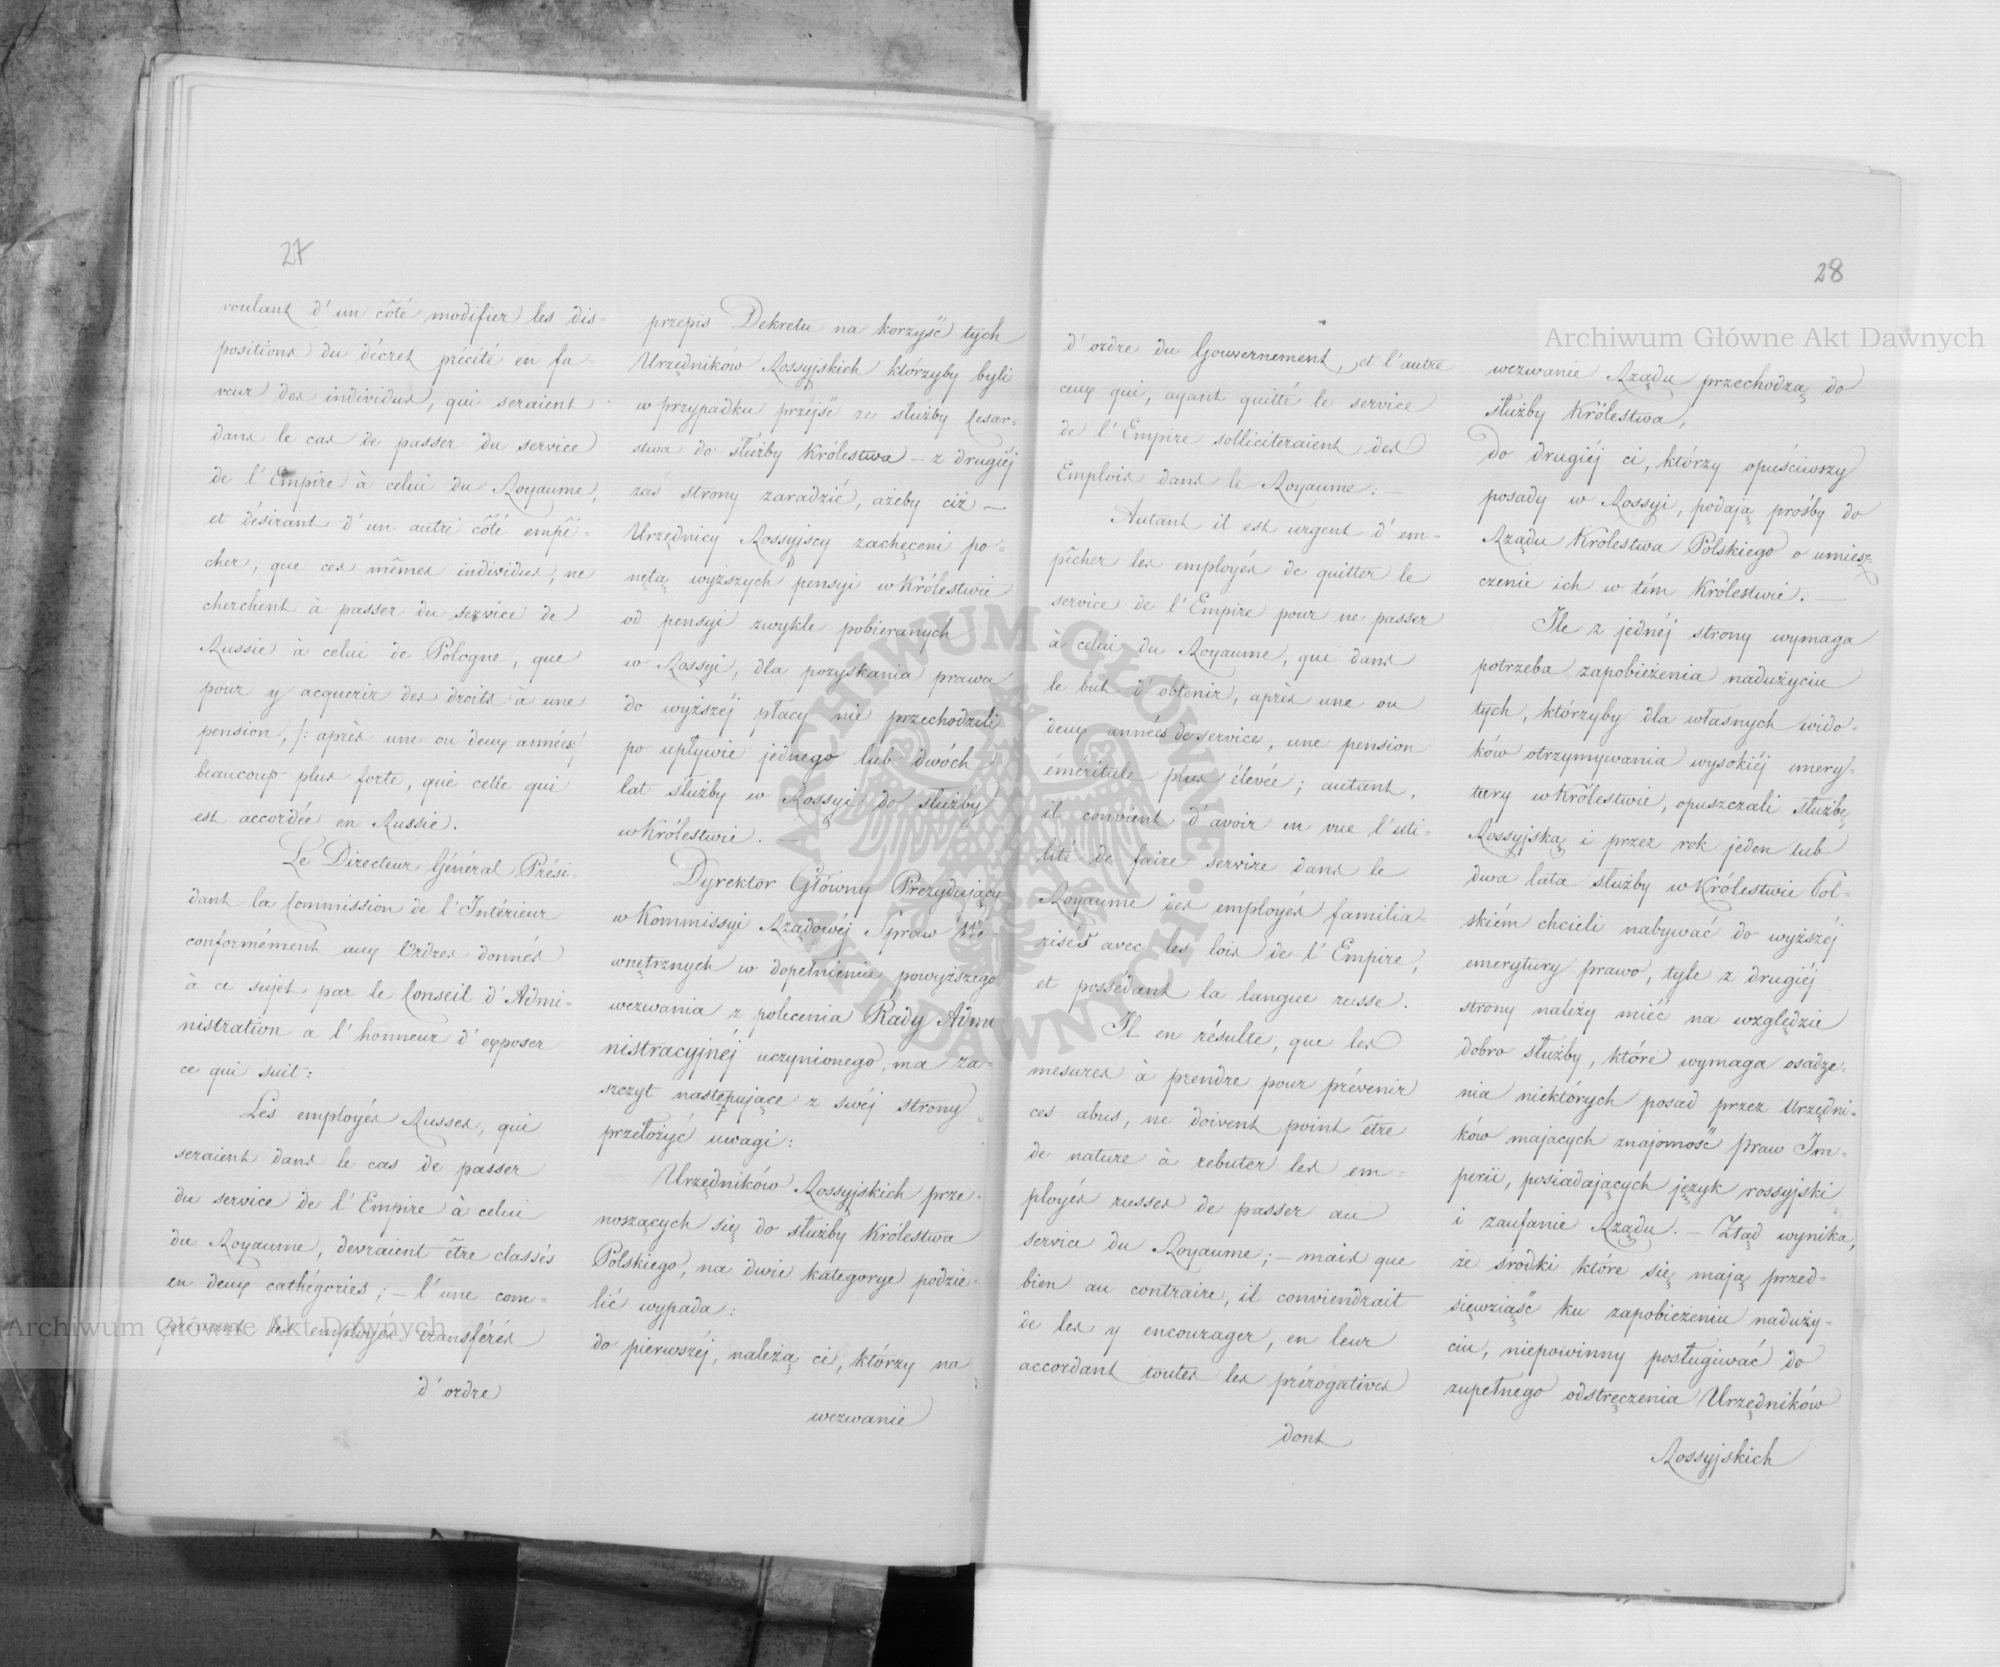 27
voulant d'un côté modifier les dis-
positions du décret précité en fa-
veur des individus, qui seraient
dans le cas de passer du service
de l'Empire à celui du Royaume,
et désirant d'un autre côté empê-
cher, que ces mêmes individus, ne
cherchent à passer du service de
Russie à celui de Pologne, que
pour y acquerir des droits à une
pension, /: après une ou deux années:/
beaucoup plus forte, que celle qui
est accordée en Russie.
Le Directeur Général Prési-
dant la Commission de l'Intérieur
conformément aux Ordres donnés
à ce sujet par le Conseil d'Admi-
nistration a l'honneur d'exposer
ce qui suit:
Les employés Russes, qui
seraient dans le cas de passer
du service de l'Empire à celui
du Royaume, devraient être classés
en deux cathégories; – l'une com-
prenant les employés transférés
d'ordre
przepis Dekretu na korzyść tych
Urzędników Rossyjskich którzyby byli
w przypadku przejść ze służby Cesar-
stwa do służby Królestwa – z drugiéj
zaś strony zaradzić, ażeby ciż –
Urzędnicy Rossyjscy zachęceni po-
nętą wyższych pensyi w Królestwie
od pensyi zwykle pobieranych
w Rossyi, dla pozyskania prawa
do wyższéj płacy nie przechodzili
po upływie jednego lub dwóch
lat służby w Rossyi do służby
w Królestwie.
Dyrektor Główny Prezydujący
w Kommissyi Rządowéj Spraw We-
wnętrznych w dopełnieniu powyższego
wezwania z polecenia Rady Admi
nistracyjnéj uczynionego, ma za-
szczyt następujące z swéj strony
przełożyć uwagi:
Urzędników Rossyjskich prze-
noszących się do służby Królestwa
Polskiego, na dwie kategorye podzie-
lić wypada:
do pierwszéj, należą ci, którzy na
wezwanie
28
d'ordre du Gouvernement, et l'autre
ceux qui, ayant quitté le service
de l'Empire solliciteraient des
Emplois dans le Royaume: –
Autant il est urgent d'em-
pêcher les employés de quitter le
service de l'Empire pour ne passer
à celui du Royaume, que dans
le but d'obtenir, après une ou
deux années de service, une pension
éméritale plus élevée; autant,
il convient d'avoir en vue l'uti-
lité de faire servire dans le
Royaume des employés familia-
risés avec les lois de l'Empire,
et possédant la langue russe.
Il en résulte, que les
mesures à prendre pour prévenir
ces abus, ne doivent point être
de nature à rebuter les em-
ployés russes de passer au
service du Royaume; – mais que
bien au contraire, il conviendrait
de les y encourager, en leur
accordant toutes les prérogatives
dont
wezwanie Rządu przechodzą do
służby Królestwa,
Do drugiéj ci, którzy opuściwszy
posady w Rossyi, podają prośby do
Rządu Królestwa Polskiego o umiesz-
czenie ich w tém Królestwie. –
Ile z jednéj strony wymaga
potrzeba zapobieżenia nadużyciu
tych, którzyby dla własnych wido-
ków otrzymywania wysokiéj emery-
tury w Królestwie, opuszczali służbę
Rossyjską i przez rok jeden lub
dwa lata służby w Królestwie Pol-
skiém chcieli nabywać do wyższéj
emerytury prawo, tyle z drugiéj
strony należy mieć na względzie
dobro służby, które wymaga osadze-
nia niektórych posad przez Urzędni-
ków mających znajomość praw Im-
perii, posiadających język rossyjski
i zaufanie Rządu. – Ztąd wynika,
że środki które się mają przed-
sięwziąść ku zapobieżeniu naduży-
ciu, niepowinny posługiwać do
zupełnego odstręczenia Urzędników
Rossyjskich
Archiwum Główne Akt Dawnych
Archiwum Główne Akt Dawnych
ARCHIWUM GŁÓWNE AKT DAWNYCH